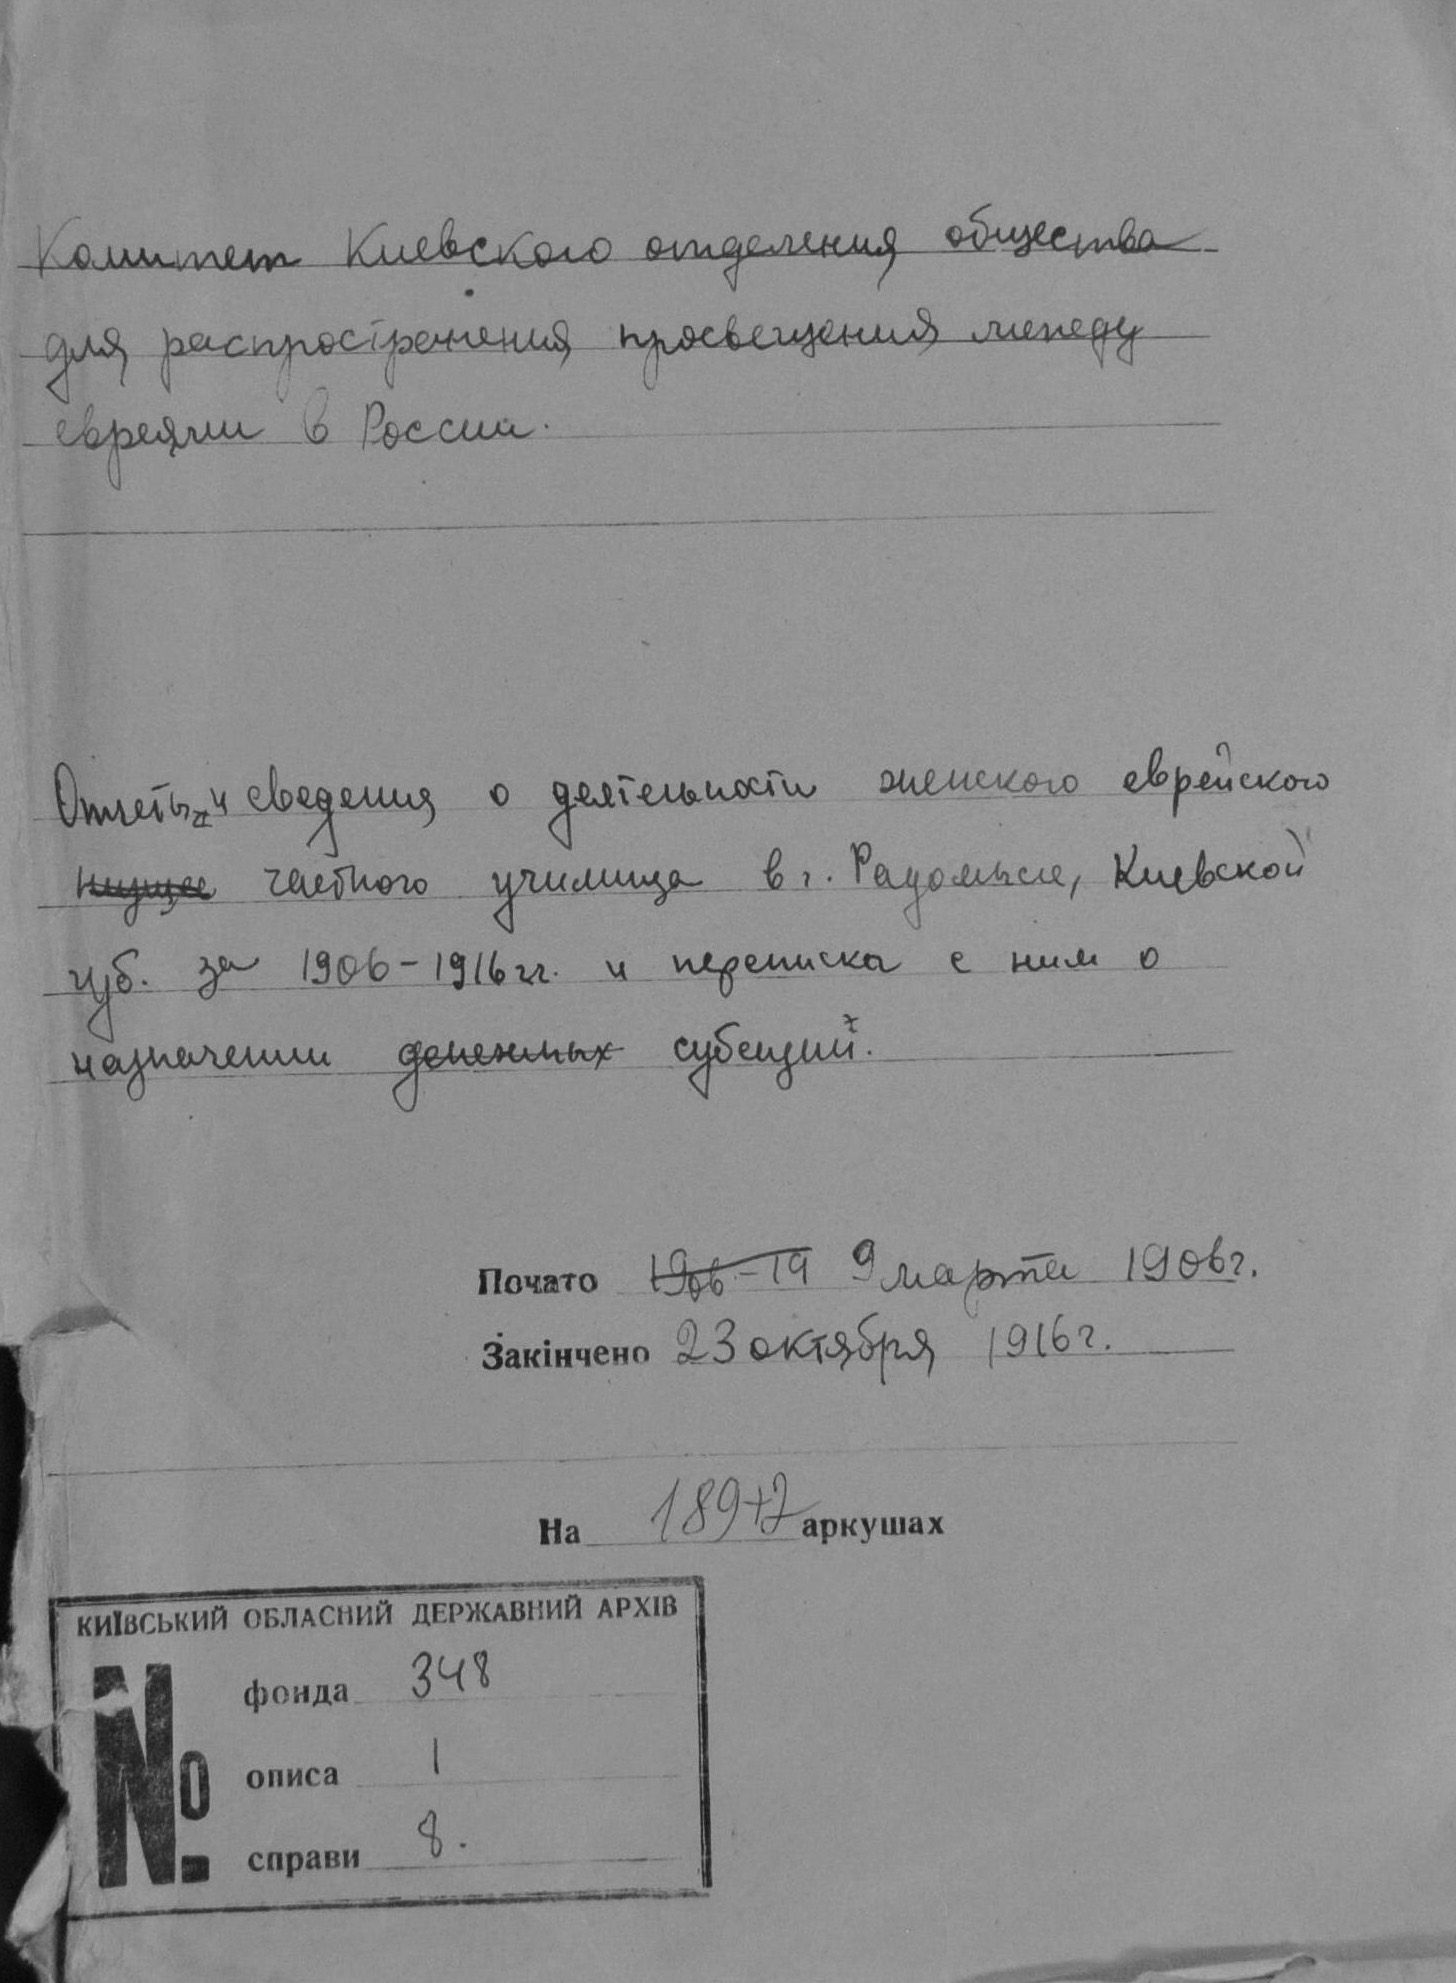 Комитет Киевского отделения общества
для распространения просвещения между
евреями в России.
Отчеты и сведения о деятельности женского еврейского
частного училища в г. Радомысле, Киевской
губ. за 1906-1916 гг. и переписка с ним о
назначении денежных субсидий.
Почато 1906-19 9 марта 1906 г.
Закінчено 23 октября 1916 г.
На 189+2 аркушах
КИЇВСЬКИЙ ОБЛАСНИЙ ДЕРЖАВНИЙ АРХІВ
№
фонда 348
описа 1
справи 8.